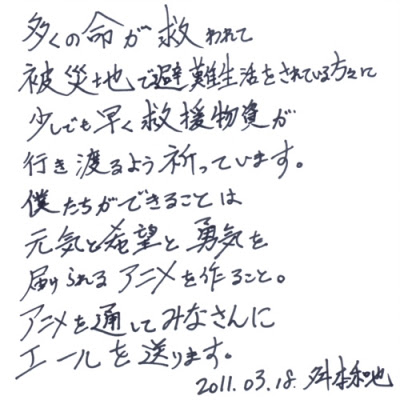 多くの命が救われて
被災地で避難生活をされている方々に
少しでも早く救援物資が
行き渡るよう祈っています。
僕たちができることは
元気と希望と勇気を
届けられるアニメを作ること。
アニメを通してみなさんに
エールを送ります。
2011.03.18. 舛本和也